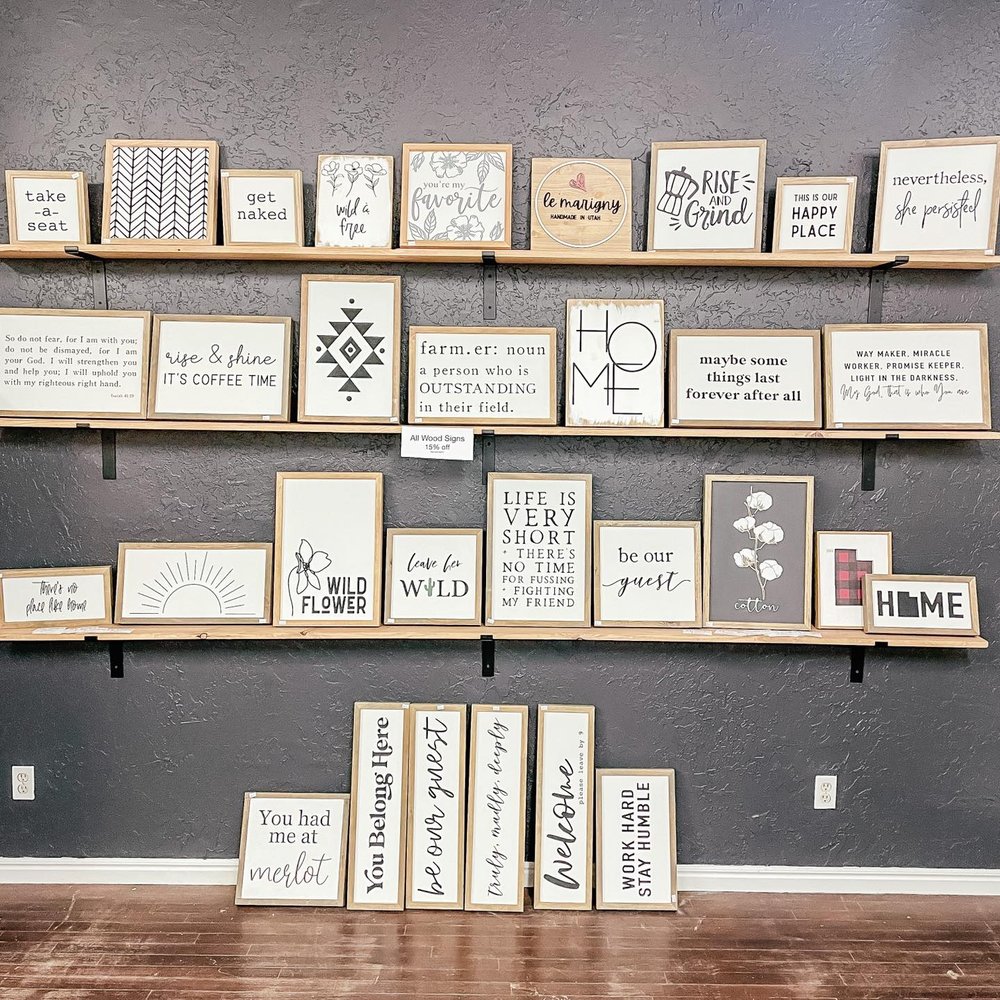 take
-a-
seat
get
naked
wild &
free
you're my
favorite
le marigny
HANDMADE IN UTAH
RISE
AND
GRIND
THIS IS OUR
HAPPY
PLACE
nevertheless,
she persisted
So do not fear, for I am with you;
do not be dismayed, for I am
your God. I will strengthen you
and help you; I will uphold you
with my righteous right hand.
Isaiah 41:10
rise & shine
IT'S COFFEE TIME
farm.er: noun
a person who is
OUTSTANDING
in their field.
HO
ME
maybe some
things last
forever after all
WAY MAKER, MIRACLE
WORKER, PROMISE KEEPER,
LIGHT IN THE DARKNESS.
My God, that is who You are
All Wood Signs
15% off
there's no
place like home
WILD
FLOWER
leave her
WILD
LIFE IS
VERY
SHORT
+ THERE'S
NO TIME
FOR FUSSING
+ FIGHTING
MY FRIEND
be our
guest
cotton
HOME
You had
me at
merlot
You Belong Here
be our guest
truly, madly, deeply
Welcome
please leave by 9
WORK HARD
STAY HUMBLE